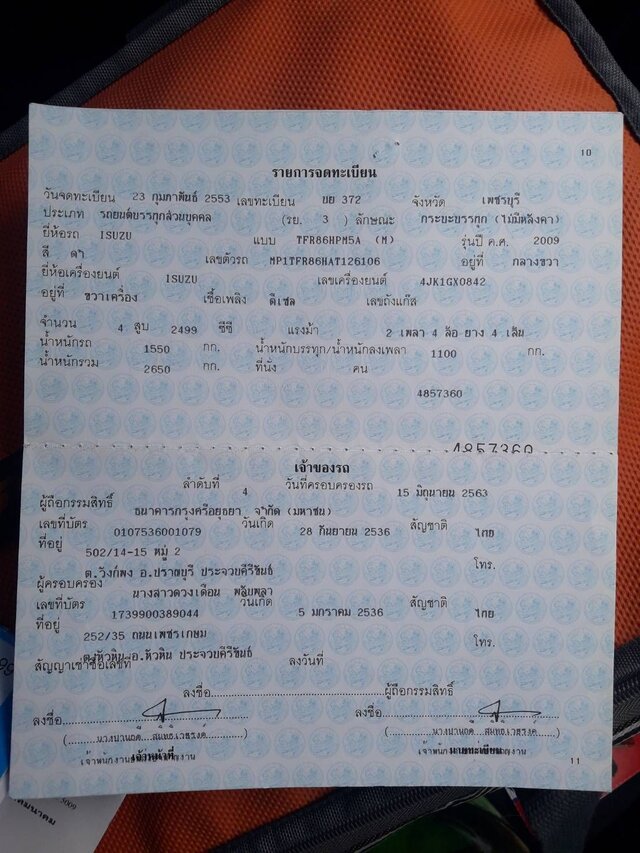 10
รายการจดทะเบียน
วันจดทะเบียน 23 กุมภาพันธ์ 2553 เลขทะเบียน บย 372 จังหวัด เพชรบุรี
ประเภท รถยนต์บรรทุกส่วนบุคคล (รย. 3 ) ลักษณะ กระบะบรรทุก (ไม่มีหลังคา)
ยี่ห้อรถ ISUZU แบบ TFR86HPM5A (M) รุ่นปี ค.ศ. 2009
สี ดำ เลขตัวรถ MP1TFR86HAT126106 อยู่ที่ กลางขวา
ยี่ห้อเครื่องยนต์ ISUZU เลขเครื่องยนต์ 4JK1GX0842
อยู่ที่ ขวาเครื่อง เชื้อเพลิง ดีเซล เลขถังแก๊ส
จำนวน 4 สูบ 2499 ซีซี แรงม้า 2 เพลา 4 ล้อ ยาง 4 เส้น
น้ำหนักรถ 1550 กก. น้ำหนักบรรทุก/น้ำหนักลงเพลา 1100 กก.
น้ำหนักรวม 2650 กก. ที่นั่ง คน
4857360
4857360
เจ้าของรถ
ลำดับที่ 4 วันที่ครอบครองรถ 15 มิถุนายน 2563
ผู้ถือกรรมสิทธิ์ ธนาคารกรุงศรีอยุธยา จำกัด (มหาชน)
เลขที่บัตร 0107536001079 วันเกิด 28 กันยายน 2536 สัญชาติ ไทย
ที่อยู่ 502/14-15 หมู่ 2
ต.วังก์พง อ.ปราณบุรี ประจวบคีรีขันธ์ โทร.
ผู้ครอบครอง นางสาวดวงเดือน พลับพลา
เลขที่บัตร 1739900389044 วันเกิด 5 มกราคม 2536 สัญชาติ ไทย
ที่อยู่ 252/35 ถนนเพชรเกษม โทร.
ต.หัวหิน อ.หัวหิน ประจวบคีรีขันธ์
สัญญาเช่าซื้อเลขที่ ลงวันที่
ลงชื่อ ผู้ถือกรรมสิทธิ์
ลงชื่อ ลงชื่อ
เจ้าหน้าที่ นายทะเบียน
11
5009